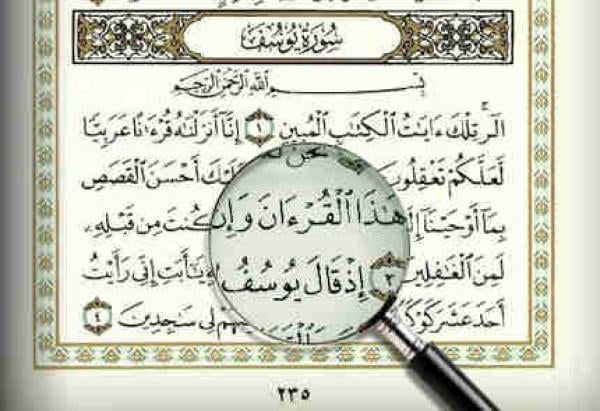 سُورَةُ يُوسُفَ
بِسْمِ اللَّهِ الرَّحْمَٰنِ الرَّحِيمِ
الٓر تِلْكَ ءَايَٰتُ الْكِتَٰبِ الْمُبِينِ ١ إِنَّا أَنزَلْنَٰهُ قُرْءَٰنًا عَرَبِيًّا
لَّعَلَّكُمْ تَعْقِلُونَ نَحْنُ أَحْسَنَ الْقَصَصِ
بِمَا أَوْحَيْنَا هَٰذَا الْقُرْءَانَ وَإِن كُنتَ مِن قَبْلِهِ
لَمِنَ الْغَٰفِلِينَ ٣ إِذْ قَالَ يُوسُفُ يَٰأَبَتِ إِنِّي رَأَيْتُ
أَحَدَ عَشَرَ لِي سَٰجِدِينَ ٤
٢٣٥